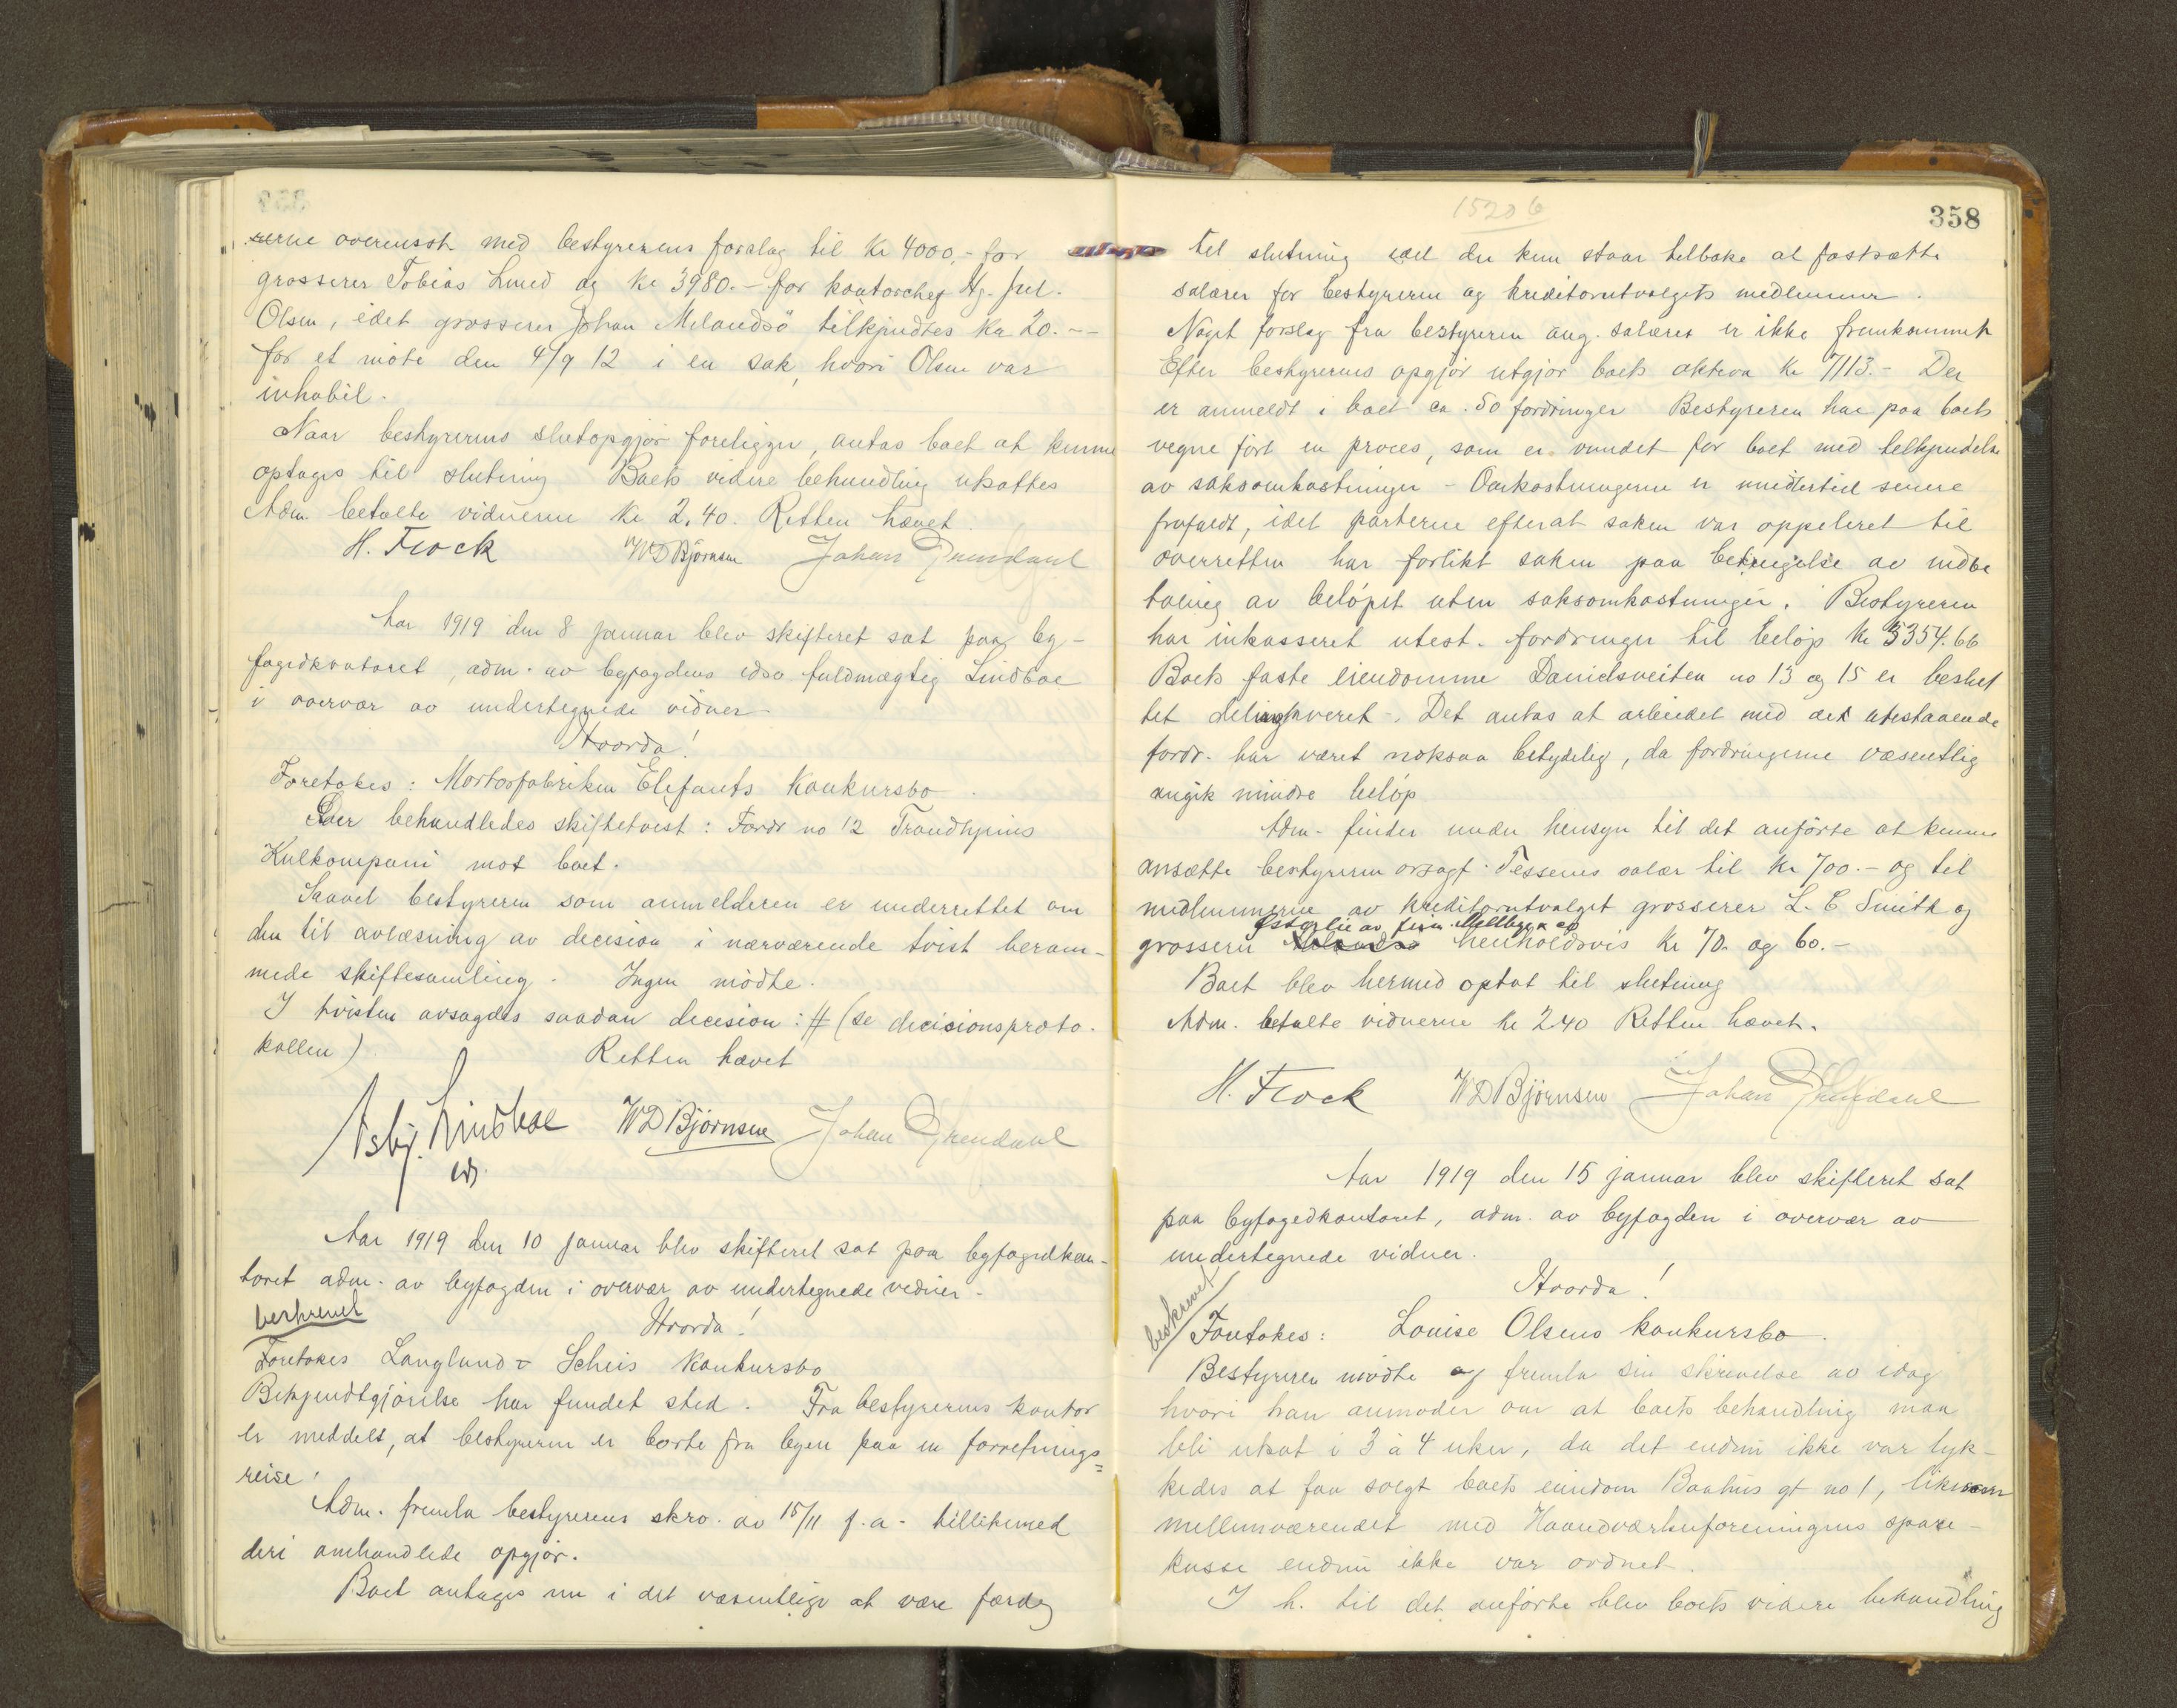 rerne overensst. med bestyrerens forslag til kr 4000,- for
grosserer Tobias Lund og kr 3980.- for kontorchef Hj. Jul.
Olsen, idet grosserer Johan Melandsö tilkjendtes kr 20.--
for et möte den 4/9 12 i en sak, hvori Olsen var
inhabil.
Naar bestyrerens slutopgjör foreligger, antas boet at kunne
optages til slutning Boets videre behandling utsattes
Adm. betalte vidnerne kr 2.40. Retten hævet.
H. Flock WD Björnsen Johan Grendahl
Aar 1919 den 8 januar blev skifteret sat paa by-
fogedkontoret, adm. av byfogdens edsv fuldmægtig Lindboe
i overvær av undertegnede vidner.
Hvorda!
Foretokes: Mortorfabriken Elefants konkursbo.
Der behandledes skiftetvist: Fordr no 12 Trondhjems
Kulkompani mot boet.
Saavel bestyreren som anmelderen er underrettet om
den til avlæsning av decision i nærværende tvist beram-
mede skiftesamling. Ingen mödte.
I tvisten avsagdes saadan decision: # (se decisionsproto-
kollen) Retten hævet
Asbj. Lindboe WD Björnsen Johan Grendahl
Aar 1919 den 10 januar blev skifteret sat paa byfogedkon-
toret adm. av byfogden i overvær av undertegnede vidner.
beskrevet Hvorda!
Foretokes Langlund & Scheis konkursbo
Bekjendtgjörelse har fundet sted. Fra bestyrerens kontor
er meddelt, at bestyreren er borte fra byen paa en forretnings=
reise.
Adm. fremla bestyrerens skrv. av 15/11 f.a. tillikemed
deri omhandlede opgjör.
Boet antages nu i det væsentlige at være færdig
1520 b
358
til slutning idet der kun staar tilbake at fastsætte
salærer for bestyreren og kreditorutvalgets medlemmer.
Noget forslag fra bestyreren ang. salæret er ikke fremkommet
Efter bestyrerens opgjör utgjör boets aktiva kr 7113.- Der
er anmeldt i boet ca. 50 fordringer Bestyreren har paa boets
vegne fört en proces, som er vundet for boet med tilkjendelse
av saksomkostninger - Omkostningerne er imidlertid senere
frafaldt, idet parterne efterat saken var appelleret til
overretten har forlikt saken paa betingelse av indbe
taling av belöpet uten saksomkostninger. Bestyreren
har inkasseret utest. fordringer til belöp kr 5354.66
Boets faste eiendomme Danielsveiten no 13 og 15 er beskat
tet delingkveret. Det antas at arbeidet med det utestaaende
fordr. har været noksaa betydelig, da fordringerne væsentlig
angik mindre belöp
Adm. finder under hensyn til det anförte at kunne
ansætte bestyreren orsagf. Tessems salær til kr 700.- og til
medlemmerne av kreditorutvalget grosserer L. C Smith og
Österlie av firm. Mellbye & co
grosserer henholdsvis kr 70. og 60.-
Boet blev hermed optat til slutning
Adm. betalte vidnerne kr 2.40 Retten hævet.
H. Flock WD Björnsen Johan Grendahl
Aar 1919 den 15 januar blev skifteret sat
paa byfogedkontoret, adm. av byfogden i overvær av
undertegnede vidner.
Hvorda!
beskrevet
Foretokes: Louise Olsens konkursbo.
Bestyreren mödte og fremla sin skrivelse av idag
hvori han anmoder om at boets behandling maa
bli utsat i 3 à 4 uker, da det endnu ikke var lyk-
kedes at faa solgt boets eiendom Baahus gt no 1, likesom
mellemværendet med Haandværkerforeningens spare-
kasse endnu ikke var ordnet.
I h. til det anförte blev boets videre behandling